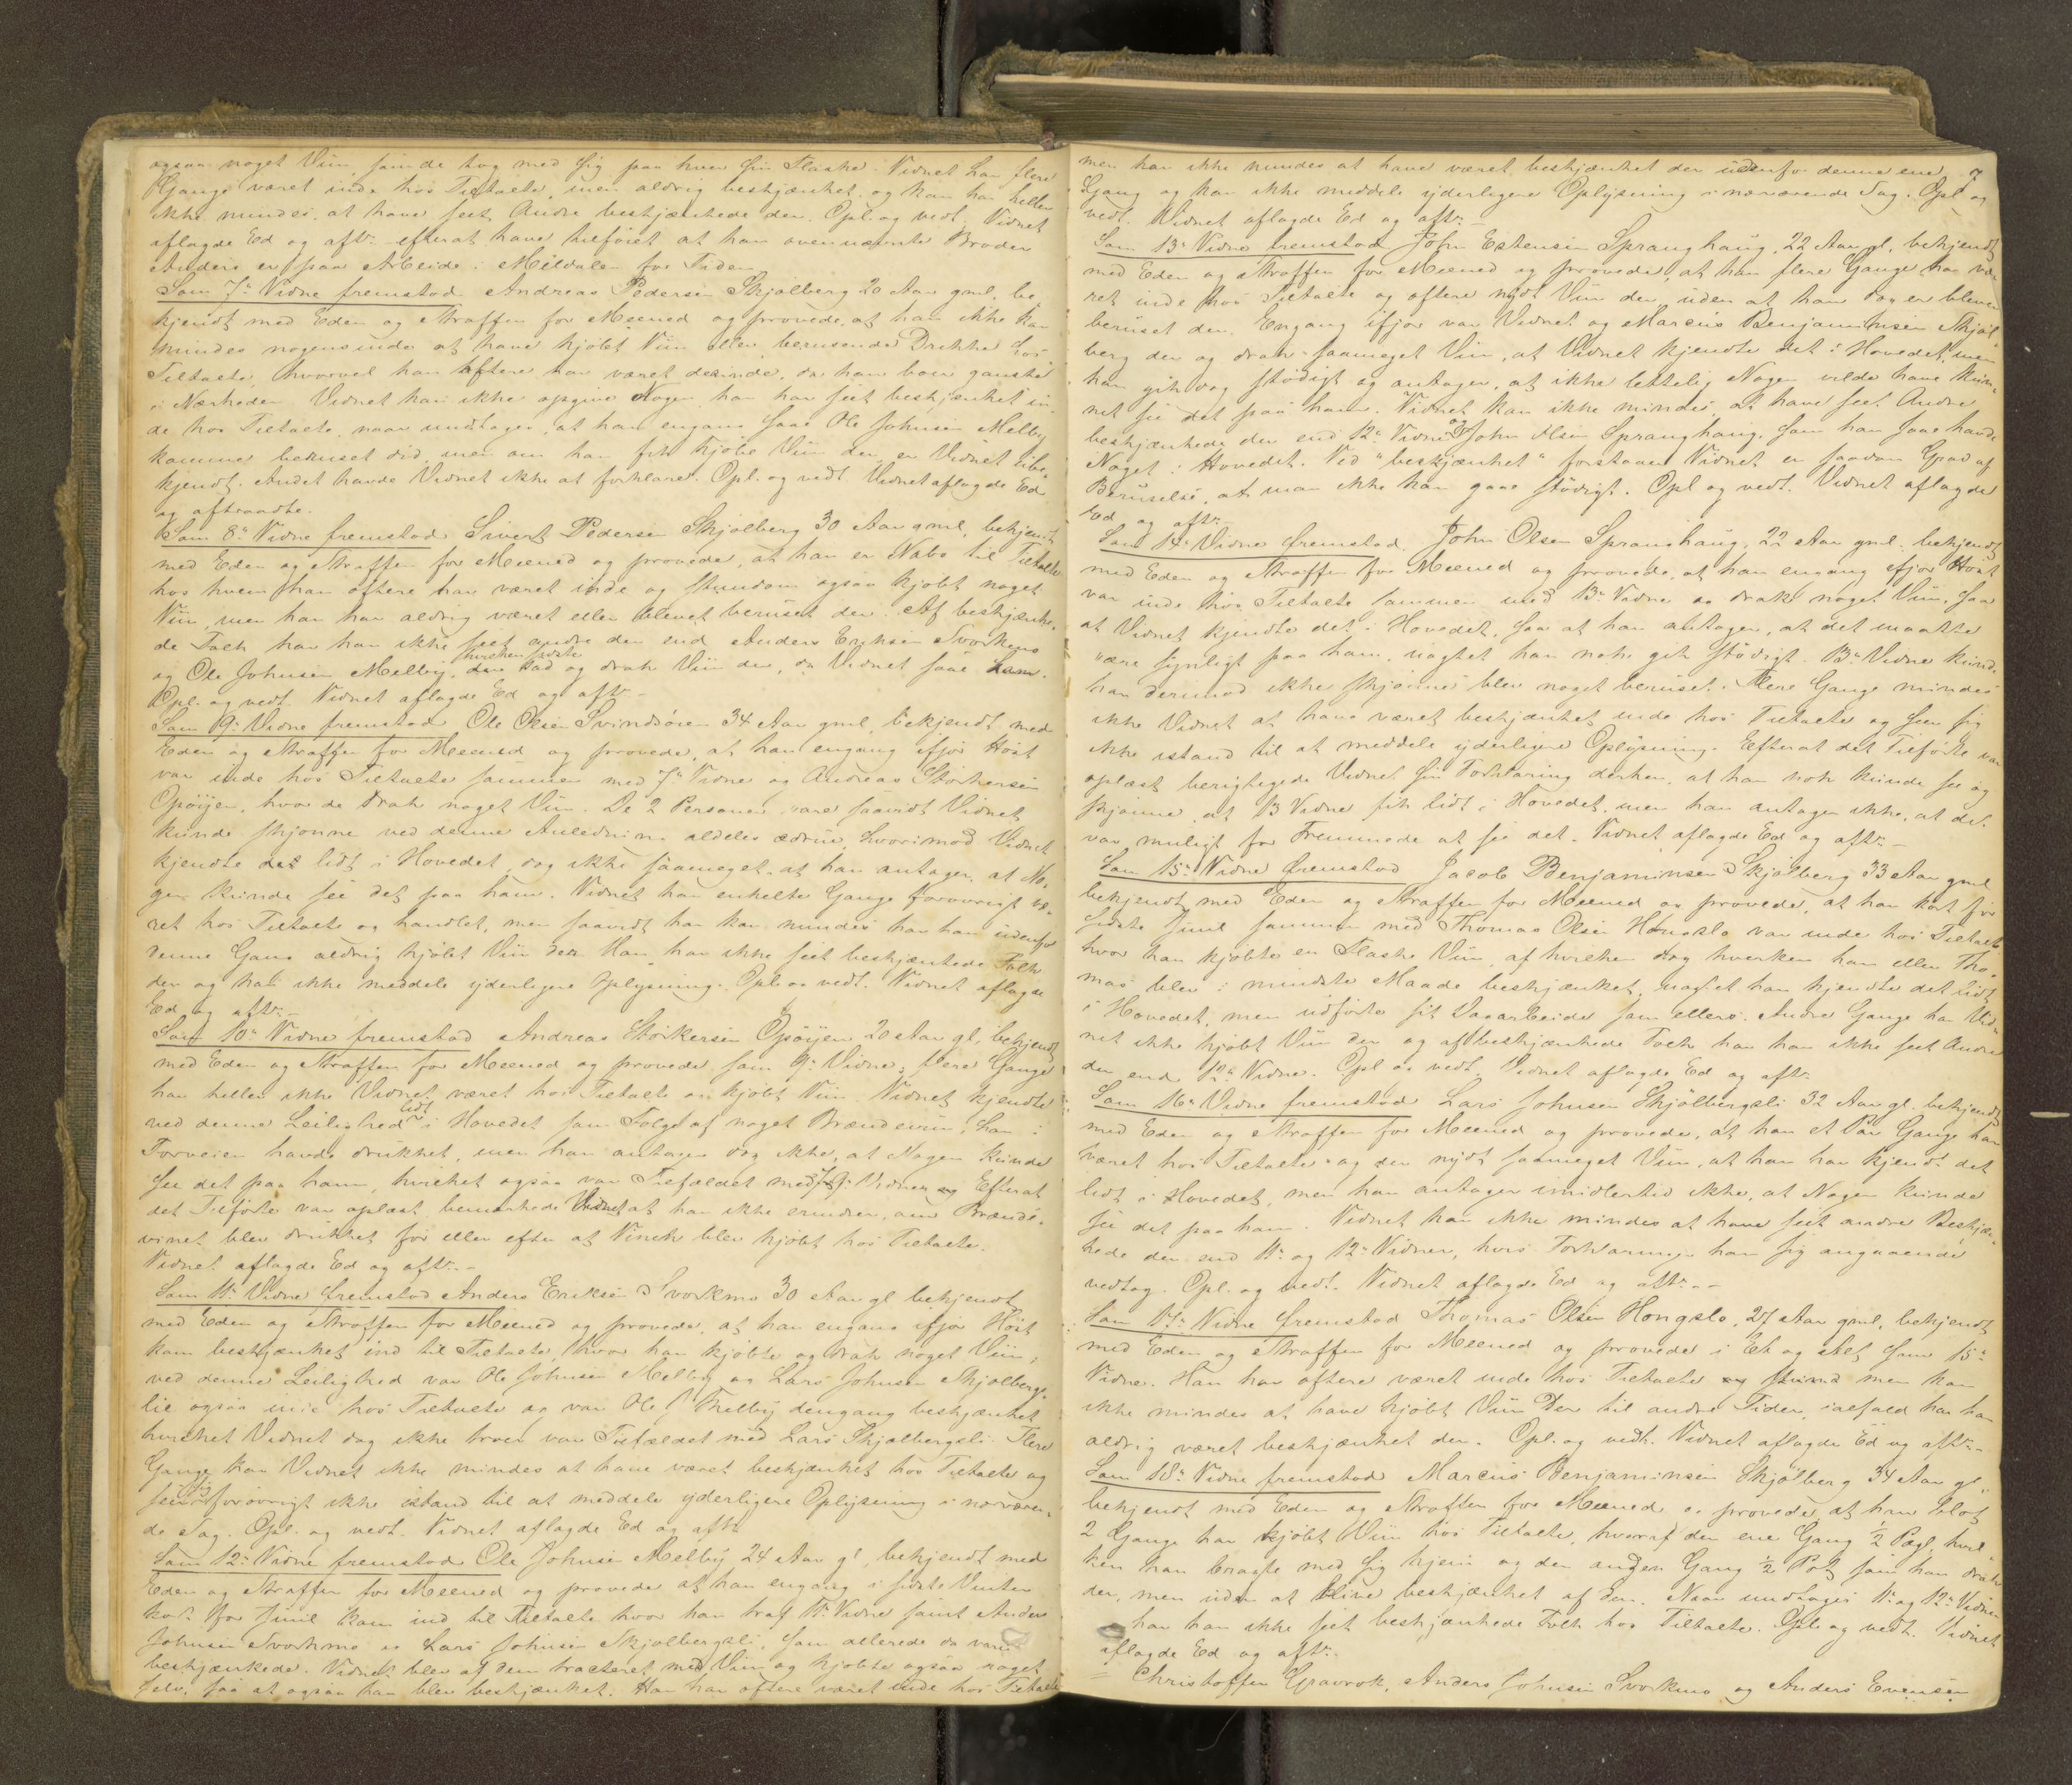 ogsaa noget Viin, som de tog med sig paa hver sin Flaske. Vidnet har flere
Gange været inde hos Tiltalte, men aldrig beskjænket, og kan han heller
ikke mindes, at have seet Andre beskjænkede der. Opl. og vedt. Vidnet
aflagde Ed og aftr. efterat have tilføiet at han ovennævnte Broder
Anders er paa Arbeide i Meldalen for Tiden.
Som 7de Vidne fremstod Andreas Pedersen Skjølberg 20 Aar gml, be-
kjendt med Eden og Straffen for Meened og provede, at han ikke kan
mindes nogensinde at have kjøbt Viin eller berusende Drikke hos
Tiltalte, hvorvel han oftere har været derinde, da han boer ganske
i Nærheden. Vidnet kan ikke opgive Nogen, han har seet beskjænket in-
de hos Tiltalte, naar undtages, at han engang saae Ole Johnsen Melby
komme beruset did, men om han fik kjøbe Viin der, er Vidnet ube-
kjendt. Andet havde Vidnet ikke at forklare. Opl. og vedt. Vidnet aflagde Ed
og aftraadte.
Som 8de Vidne fremstod Sivert Pedersen Skjølberg 30 Aar gml, bekjendt
med Eden og Straffen for Meened og provede, at han er Nabo til Tiltalte
hos hvem han oftere har været inde og stundom ogsaa kjøbt noget
Viin, men han har aldrig været eller blevet beruset der. Af beskjænke-
de Folk har han ikke seet andre der end Anders Eriksen Svorkmo
og Ole Johnsen Melby, hvilken sidste sad og drak Viin der, da Vidnet saae ham.
Opl. og vedt. Vidnet aflagde Ed og aftr. –
Som 9de Vidne fremstod Ole Olsen Svindsøien 34 Aar gml, bekjendt med
Eden og Straffen for Meened og provede, at han engang ifjor Høst
var inde hos Tiltalte sammen med 7de Vidne og Andreas Størkersen
Opøijen, hvor de drak noget Viin. De 2 Personer vare saavidt Vidnet
kunde skjønne ved denne Anledning aldeles ædrue, hvorimod Vidnet
kjendte det lidt i Hovedet, dog ikke saameget, at han antager, at No-
gen kunde see det paa ham. Vidnet har enkelte Gange forøvrigt væ-
ret hos Tiltalte og handlet, men saavidt han kan mindes har han udenfor
denne Gang aldrig kjøbt Viin der. Han har ikke seet beskjænkede Folk
der og kan ikke meddele yderligere Oplysning. Opl. og vedt. Vidnet aflagde
Ed og aftr. –
Som 10de Vidne fremstod Andreas Størkersen Opøijen 20 Aar gl, bekjendt
med Eden og Straffen for Meened og provede som 9de Vidne; flere Gange
har heller ikke Vidnet været hos Tiltalte og kjøbt Viin. Vidnet kjendte
ved denne Leilighed lidt i Hovedet som Følge af noget Brændeviin, han i
Forveien havde drukket, men han antager dog ikke, at Nogen kunde
see det paa ham, hvilket ogsaa var Tilfældet med 7de og 9de Vidner. Efterat
det Tilførte var oplæst, bemærkede Vidnet at han ikke erindrer, om Brænde-
vinet blev drukket før eller efter at Vinen blev kjøbt hos Tiltalte.
Vidnet aflagde Ed og aftr. –
Som 11te Vidne fremstod Anders Eriksen Svorkmo 30 Aar gl bekjendt
med Eden og Straffen for Meened og provede, at han engang ifjor Høst
kom beskjænket ind til Tiltalte, hvor han kjøbte og drak noget Viin,
ved denne Leilighed var Ole Johnsen Melby og Lars Johnsen Skjølbergs-
lie ogsaa inde hos Tiltalte og var Ole J. Melby dengang beskjænket
hvilket Vidnet dog ikke troer var Tilfældet med Lars Skjølbergsli. Flere
Gange kan Vidnet ikke mindes at have været beskjænket hos Tiltalte og
seer sig forøvrigt ikke istand til at meddele yderligere Oplysning i nærværen-
de Sag. Opl. og vedt. Vidnet aflagde Ed og aftr.
Som 12te Vidne fremstod Ole Johnsen Melby 24 Aar gl, bekjendt med
Eden og Straffen for Meened og provede at han engang i sidste Vinter
kort før Juul kom ind til Tiltalte hvor han traf 11te Vidne samt Anders
Johnsen Svorkmo og Lars Johnsen Skjølbergsli, som allerede da vare
beskjænkede. Vidnet blev af dem tracteret med Viin og kjøbte ogsaa noget
selv, saa at ogsaa han blev beskjænket. Han har oftere været inde hos Tiltalte
7
men kan ikke mindes at have været beskjænket der udenfor denne ene
Gang og kan ikke meddele yderligere Oplysning i nærværende Sag. Opl. og
vedt. Vidnet aflagde Ed og aftr. –
Som 13de Vidne fremstod John Estensen Spranghaug, 22 Aar gl, bekjendt
med Eden og Straffen for Meened og provede, at han flere Gange har væ-
ret inde hos Tiltalte og oftere nydt Viin der, uden at han dog er bleven
beruset der. Engang ifjor var Vidnet og Marcus Benjaminsen Skjøl-
berg der og drak saameget Viin, at Vidnet kjendte det i Hovedet, men
han gik dog stødigt og antager, at ikke lettelig Nogen vilde have kun-
net see det paa ham. Vidnet kan ikke mindes, at have seet Andre
beskjænkede der end 12te Vidne og John Olsen Spranghaug, som han saae havde
Noget i Hovedet. Ved "beskjænket" forstaaer Vidnet en saadan Grad af
Beruselse, at man ikke kan gaae stødigt. Opl og vedt. Vidnet aflagde
Ed og aftr. –
Som 14de Vidne fremstod John Olsen Spranghaug, 22 Aar gml, bekjendt
med Eden og Straffen for Meened og provede, at han engang ifjor Høst
var inde hos Tiltalte sammen med 13de Vidne og drak noget Viin, saa
at Vidnet kjendte det i Hovedet, saa at han antager, at det maatte
være synligt paa ham, uagtet han nok gik stødigt. 13de Vidne kunde
han derimod ikke skjønne blev noget beruset. Flere Gange mindes
ikke Vidnet at have været beskjænket inde hos Tiltalte og seer sig
ikke istand til at meddele yderligere Oplysning. Efterat det Tilførte var
oplæst berigtigede Vidnet sin Forklaring derhen, at han nok kunde see og
skjønne, at 13 Vidne fik lidt i Hovedet, men han antager ikke, at det
var muligt for Fremmede at see det. Vidnet aflagde Ed og aftr. –
Som 15de Vidne fremstod Jacob Benjaminsen Skjølberg 33 Aar gml
bekjendt med Eden og Straffen for Meened og provede, at han kort før
sidste Juul sammen med Thomas Olsen Hongslo var inde hos Tiltalte
hvor han kjøbte en Flaske Viin, af hvilken dog hverken han eller Tho-
mas blev i mindste Maade beskjænket, uagtet han kjendte det lidt
i Hovedet, men udførte sit Dagarbeide som ellers. Andre Gange har Vid-
net ikke kjøbt Viin der og af beskjænkede Folk har han ikke seet Andre
der end 12te Vidne. Opl og vedt. Vidnet aflagde Ed og aftr.
Som 16de Vidne fremstod Lars Johnsen Skjølbergsli 32 Aar gl. bekjendt
med Eden og Straffen for Meened og provede, at han et Par Gange har
været hos Tiltalte og der nydt saameget Viin, at han har kjendt det
lidt i Hovedet, men han antager imidlertid ikke, at Nogen kunde
see det paa ham. Vidnet kan ikke mindes at have seet andre Beskjæn-
kede der end 11te og 12te Vidner, hvis Forklaringer han sig angaaende
vedtog. Opl. og vedt. Vidnet aflagde Ed og aftr. – –
Som 17de Vidne fremstod Thomas Olsen Hongslo, 27 Aar gml, bekjendt
med Eden og Straffen for Meened og provede i Et og Alt som 15de
Vidne. Han har oftere været inde hos Tiltalte men kan
ikke mindes at have kjøbt Viin der til andre Tider, ialfald har han
aldrig været beskjænket der. Opl. og vedt. Vidnet aflagde Ed og aftr. –
Som 18de Vidne fremstod Marcus Benjaminsen Skjølberg 34 Aar gl
bekjendt med Eden og Straffen for Meened og provede at han blot
2 Gange har kjøbt Viin hos Tiltalte, hvoraf den ene Gang ½ Pægl, hvil-
ken han bragte med sig hjem og den anden Gang ½ Pot, som han drak
der, men uden at blive beskjænket af den. Naar undtages 11te og 12te Vidne
har han ikke seet beskjænkede Folk hos Tiltalte. Opl. og vedt. Vidnet
aflagde Ed og aftr.
Christoffer Gravrok, Anders Johnsen Svorkmo og Anders Evensen